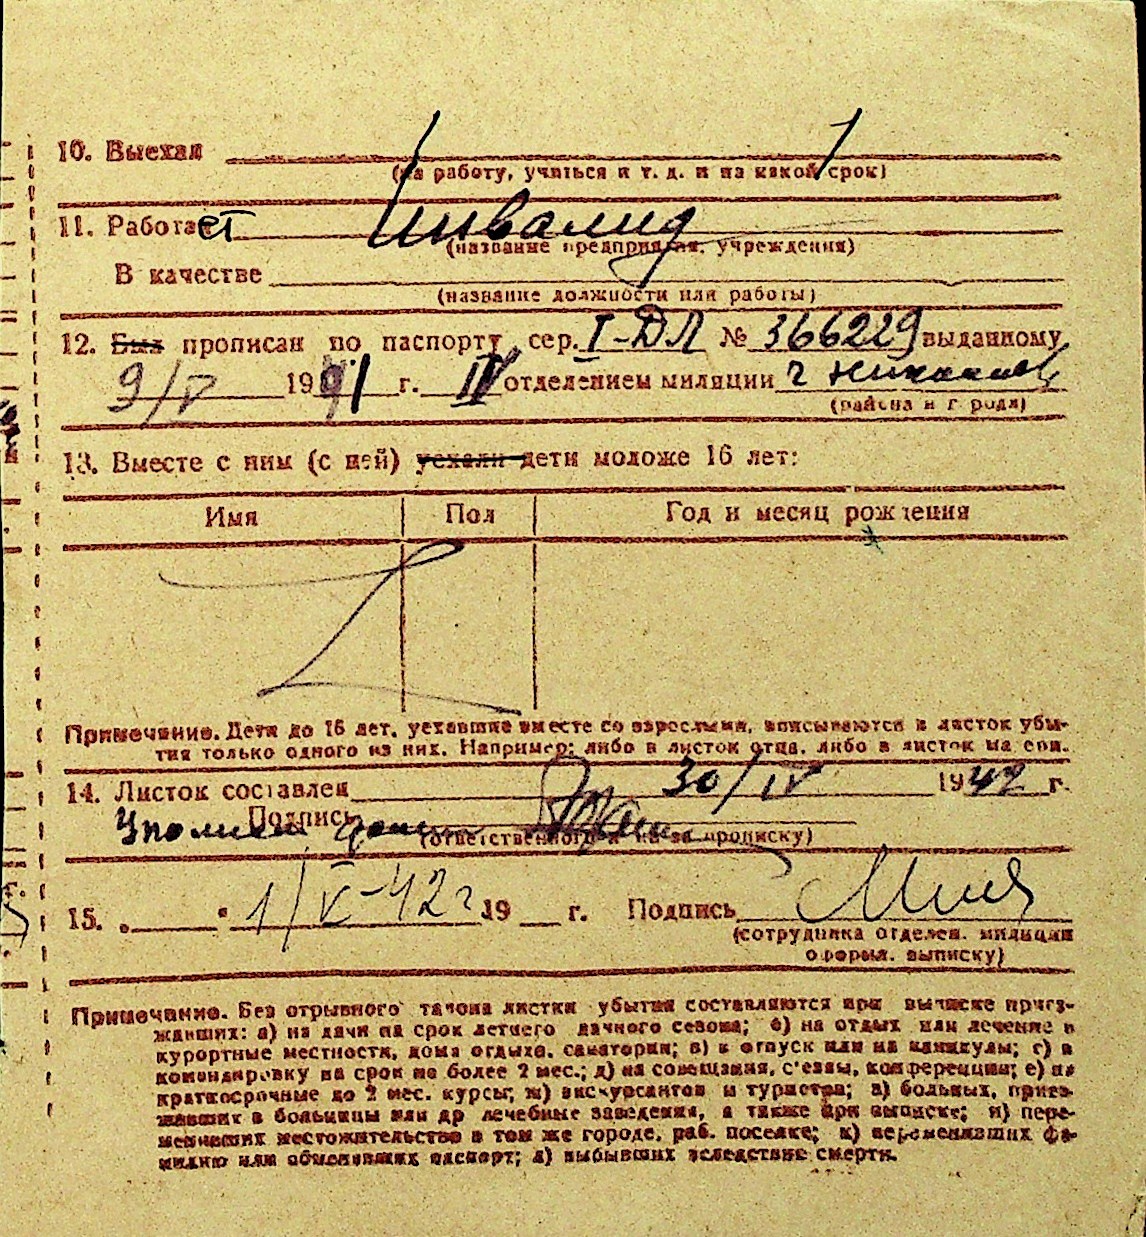 10. Выехал
(на работу, учиться и т. д. и на какой срок)
11. Работает Инвалид
(название предприятия, учреждения)
В качестве
(название должности или работы)
12. Был прописан по паспорту сер. I-ДЛ № 366229 выданному
9/V 1941 г. IV отделением милиции г
(района и города)
13. Вместе с ним (с ней) уехали дети моложе 16 лет:
Имя Пол Год и месяц рождения
Примечание. Дети до 16 лет, уехавшие вместе со взрослыми, вписываются в листок убы-
тия только одного из них. Например: либо в листок отца, либо в листок матери.
14. Листок составлен 30/IV 1942 г.
Подпись
(ответственного за прописку)
15. „ " 1/V-42 г. 19 г. Подпись
(сотрудника отделен. милиции
оформл. выписку)
Примечание. Без отрывного талона листки убытия составляются при выписке приез-
жавших: а) на дачи на срок летнего дачного сезона; б) на отдых или лечение в
курортные местности, дома отдыха, санатории; в) в отпуск или на каникулы; г) в
командировку на срок не более 2 мес.; д) на совещания, с'езды, конференции; е) на
краткосрочные до 2 мес. курсы; ж) экскурсантов и туристов; з) больных, приез-
жавших в больницы или др лечебные заведения, а также при выписке; и) пере-
менивших местожительство в том же городе, раб. поселке; к) переменивших фа-
милию или обменявших паспорт; л) выбывших вследствие смерти.